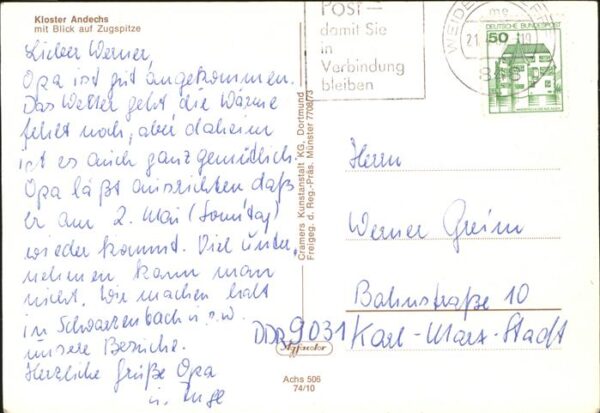 Kloster Andechs
mit Blick auf Zugspitze
Lieber Werner,
Opa ist gut angekommen.
Das Wetter geht die Wärme
fehlt noch, aber daheim
ist es auch ganz gemütlich.
Opa läßt ausrichten daß
er am 2. Mai (Sonntag)
wieder kommt. Viel unter-
nehmen kann man
nicht. Wir machen halt
in Schwarzenbach u.s.w.
unsere Besuche.
Herzliche Grüße Opa
u. Inge
Cramers Kunstanstalt KG, Dortmund
Freigeg. d. Reg.-Präs. Münster 7708/73
Achs 506
74/10
Post –
damit Sie
in
Verbindung
bleiben
WEIDEN
21.
DEUTSCHE BUNDESPOST
50
Herrn
Werner Greim
Bahnstraße 10
DDR 9031 Karl-Marx-Stadt